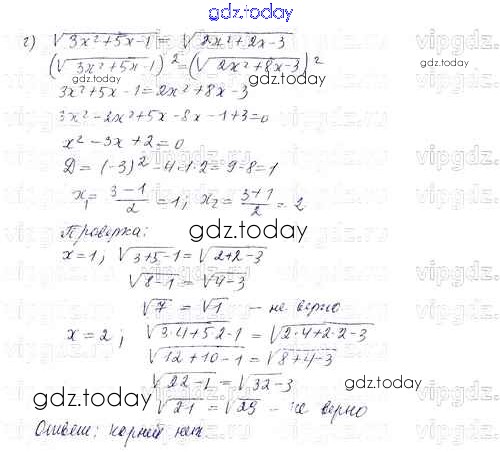 gdz.today
г) √(3x²+5x-1) = √(2x²+2x-3)
(√(3x²+5x-1))² = (√(2x²+8x-3))²
gdz.today
gdz.today
3x²+5x-1=2x²+8x-3
3x²-2x²+5x-8x-1+3=0
x²-3x+2=0
Д=(-3)²-4·1·2=9-8=1
x₁=(3-1)/2=1; x₂=(3+1)/2=2
gdz.today
Проверка:
x=1; √(3+5-1)=√(2+2-3)
√(8-1)=√(4-3)
√7=√1 – не верно
x=2; √(3·4+52-1)=√(2·4+2·2-3)
√(12+10-1)=√(8+4-3)
√(22-1)=√(32-3)
gdz.today
gdz.today
√21=√29 – не верно
Ответ: корней нет.
vipgdz.
vipgdz.
vipgdz.
vipgdz.
vipgdz.
vipgdz.
vipgdz.